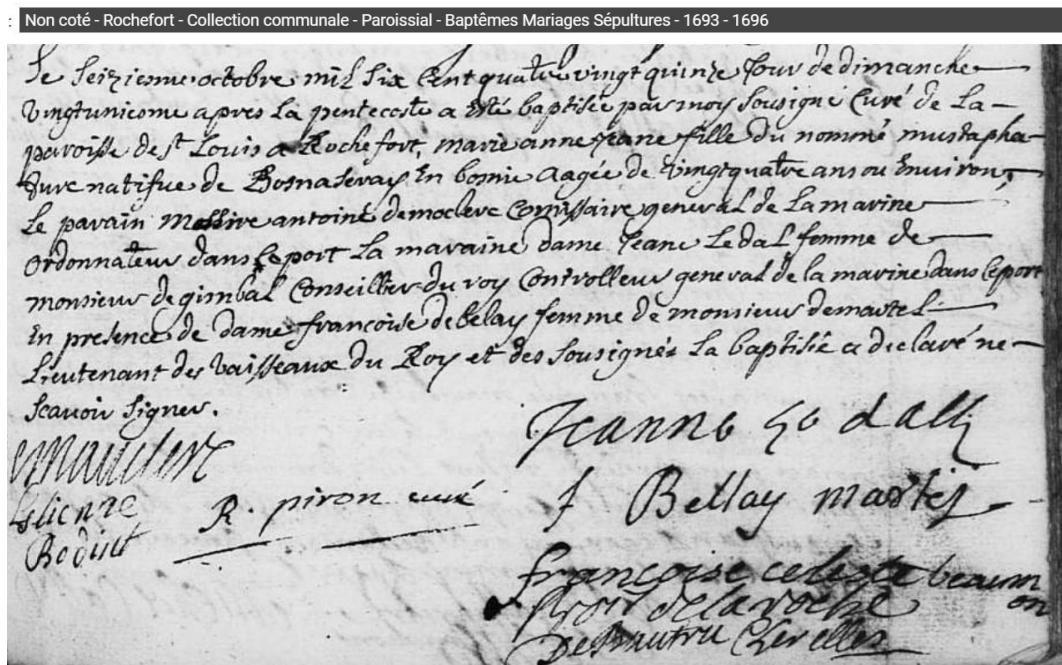 : Non coté - Rochefort - Collection communale - Paroissial - Baptêmes Mariages Sépultures - 1693 - 1696
Le seizieme octobre mil six cent quatre vingt quinze jour de dimanche
vingtunieme apres la pentecoste a esté baptisée par moy sousigné curé de la
paroisse de st Louis a Rochefort, marie anne jeane fille du nommé mustapha
turc natifue de Bosnaseray en bosnie aagée de vingtquatre ans ou environ,
Le parain Messire antoine democlere Comissaire general de la marine
ordonnateur dans ce port La maraine dame jeane Ledal femme de
monsieur de gimbal Conseiller du roy Controlleur general de la marine dans ce port
en presence de dame francoise de belay femme de monsieur demartel
Lieutenant des vaisseaux du Roy et des sousignés La baptisée a declaré ne
scavoir signer.
Jeanne Le dall
R. piron curé
f Bellay martel
françoise celeste beaumon
de la roche